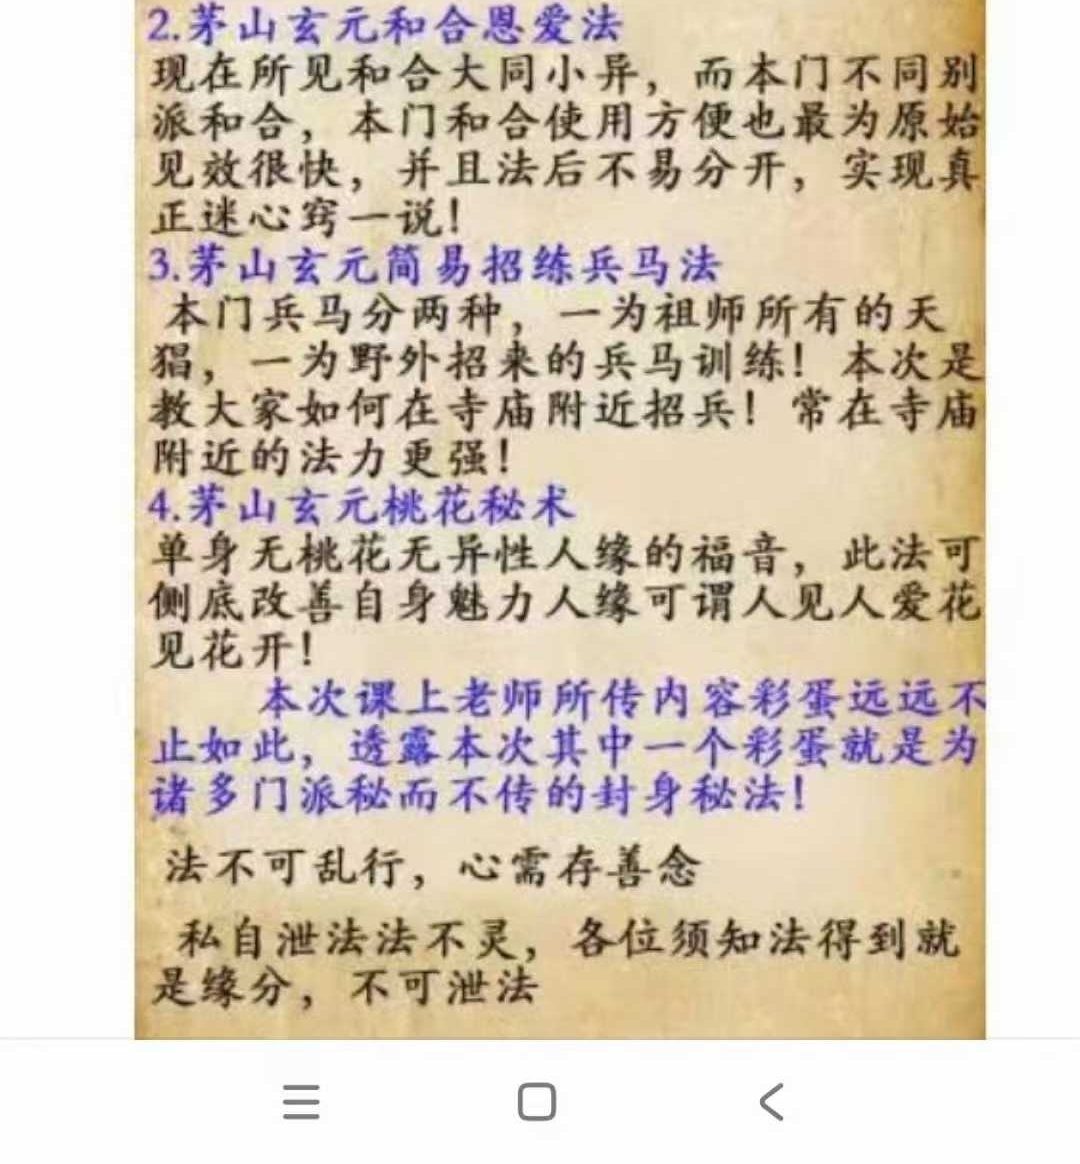 2.茅山玄元和合恩爱法
现在所见和合大同小异，而本门不同别
派和合，本门和合使用方便也最为原始
见效很快，并且法后不易分开，实现真
正迷心窍一说！
3.茅山玄元简易招练兵马法
本门兵马分两种，一为祖师所有的天
猖，一为野外招来的兵马训练！本次是
教大家如何在寺庙附近招兵！常在寺庙
附近的法力更强！
4.茅山玄元桃花秘术
单身无桃花无异性人缘的福音，此法可
侧底改善自身魅力人缘可谓人见人爱花
见花开！
本次课上老师所传内容彩蛋远远不
止如此，透露本次其中一个彩蛋就是为
诸多门派秘而不传的封身秘法！
法不可乱行，心需存善念
私自泄法法不灵，各位须知法得到就
是缘分，不可泄法